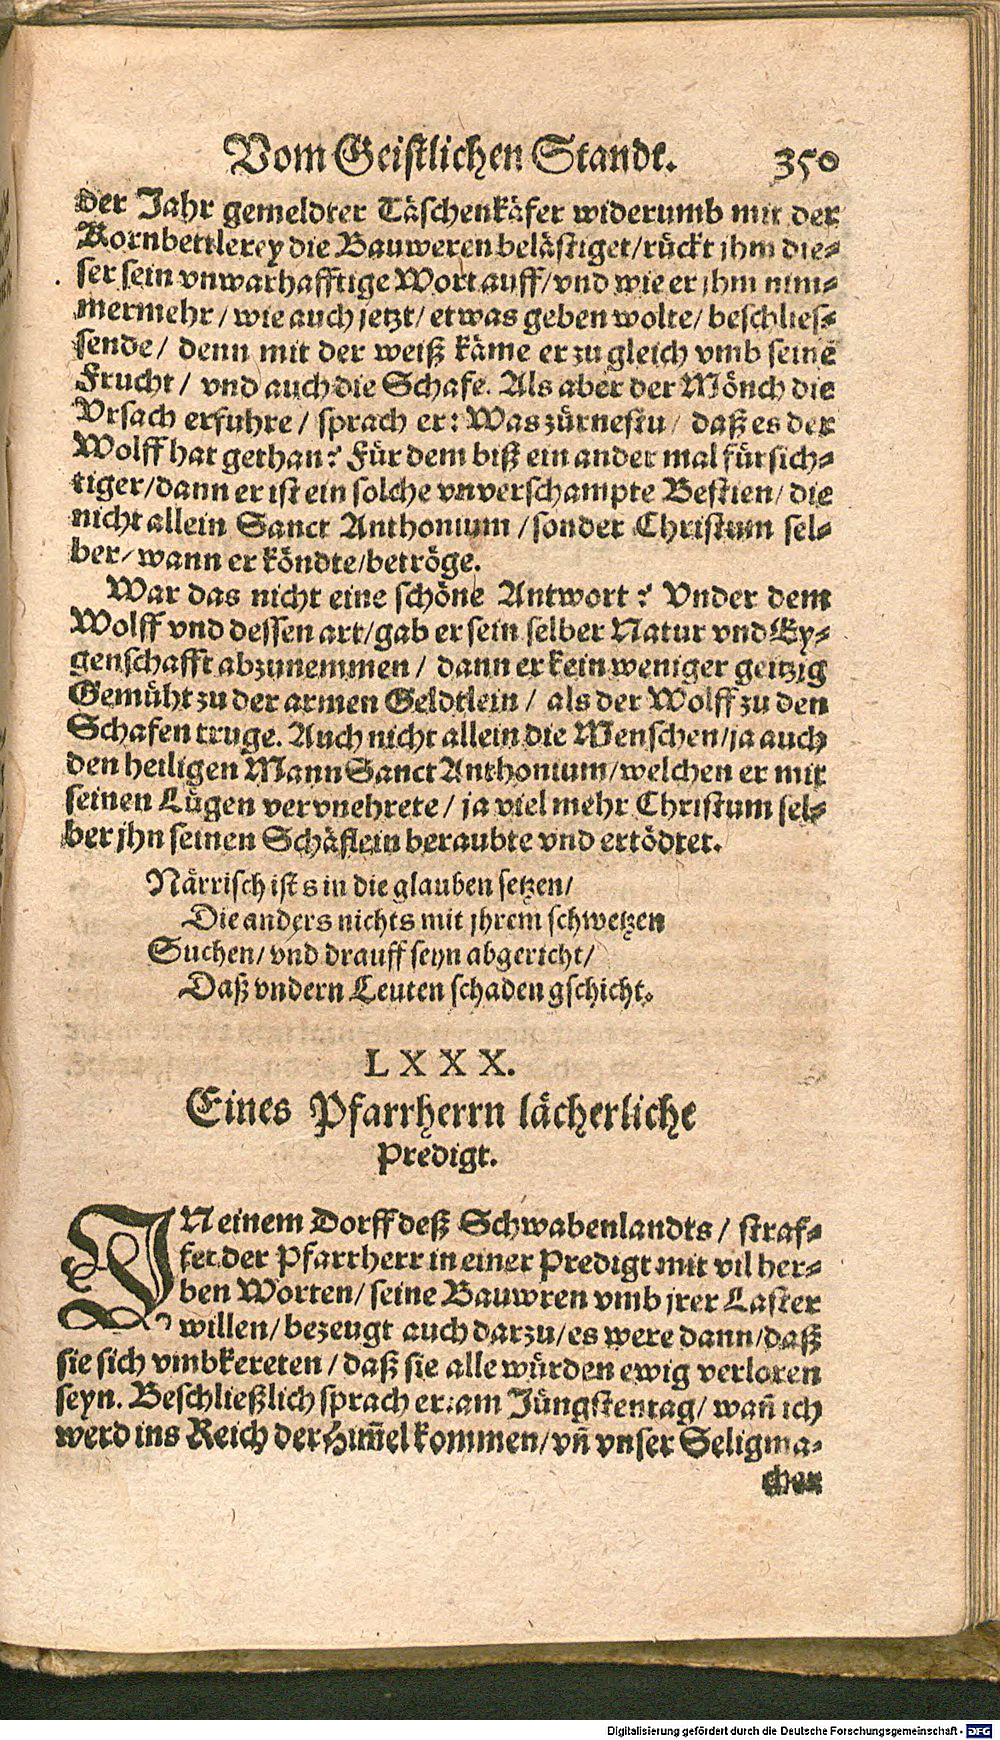 Vom Geistlichen Standt. 350
der Jahr gemeldter Täschenkäfer widerumb mit der
Kornbettlerey die Bauweren belästiget/rückt jhm die-
ser sein vnwarhafftige Wort auff/vnd wie er jhm nim-
mermehr/wie auch jetzt/etwas geben wolte/beschlies-
sende/ denn mit der weiß käme er zu gleich vmb seine
Frucht/ vnd auch die Schafe. Als aber der Mönch die
Vrsach erfuhre/ sprach er: Was zürnestu/ daß es der
Wolff hat gethan? Für dem biß ein ander mal fürsich-
tiger/dann er ist ein solche vnverschampte Bestien/ die
nicht allein Sanct Anthonium/sonder Christum sel-
ber/wann er köndte/betröge.
War das nicht eine schöne Antwort? Vnder dem
Wolff vnd dessen art/gab er sein selber Natur vnd Ey-
genschafft abzunemmen/ dann er kein weniger geitzig
Gemüht zu der armen Geldtlein/ als der Wolff zu den
Schafen truge. Auch nicht allein die Menschen/ja auch
den heiligen Mann Sanct Anthonium/welchen er mit
seinen Lügen vervnehrete/ ja viel mehr Christum sel-
ber jhn seinen Schäflein beraubte vnd ertödtet.
Närrisch ist s in die glauben setzen/
Die anders nichts mit jhrem schwetzen
Suchen/vnd drauff seyn abgericht/
Daß vndern Leuten schaden gschicht.
LXXX.
Eines Pfarrherrn lächerliche
Predigt.
IN einem Dorff deß Schwabenlandts/ straf-
fet der Pfarrherr in einer Predigt mit vil her-
ben Worten/ seine Bauwren vmb jrer Laster
willen/bezeugt auch darzu/es were dann/daß
sie sich vmbkereten/daß sie alle würden ewig verloren
seyn. Beschließlich sprach er: am Jüngstentag/ wañ ich
werd ins Reich der Him̃el kommen/vñ vnser Seligma-
cher
Digitalisierung gefördert durch die Deutsche Forschungsgemeinschaft - DFG